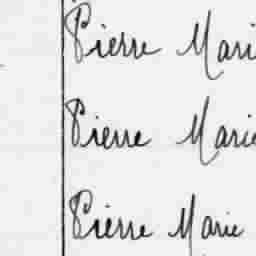 Pierre Mari
Pierre Marie
Pierre Marie